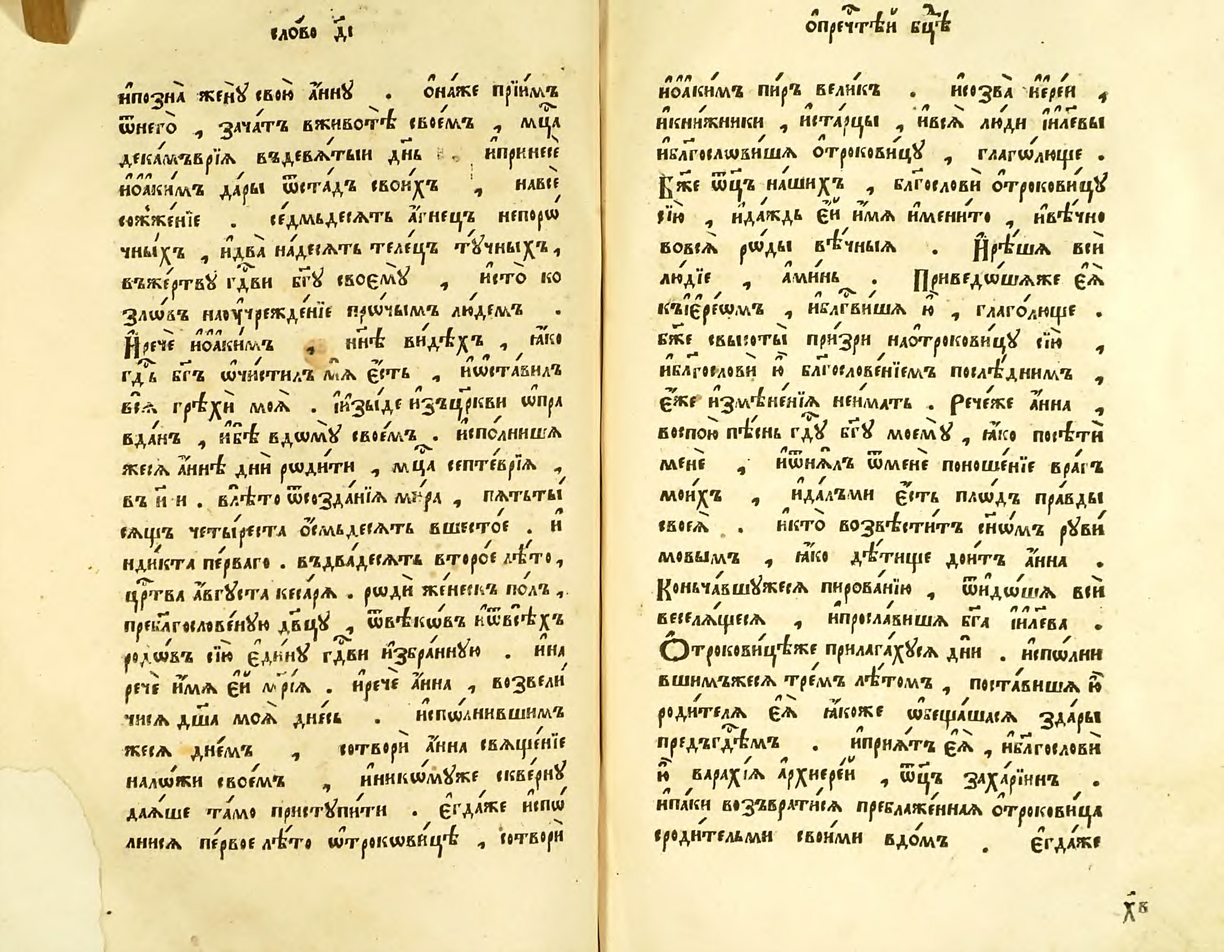 сло́во д҃і
и҆позна̀ жену̀ свою̀ а҆́нну . ѻ҆на́же прїи́мъ
ѿнего̀ , зача́тъ вживотѣ̀ свое́мъ , мц҃а
дека́мъврїѧ въдевѧ́тыи дн҃ь . и҆принесѐ
и҆ѻаки́мъ да́ры ѿста́дъ свои́хъ , навсѐ
сожже́нїе . се́дмьдесѧтъ а҆́гнецъ непорѡ́
чныхъ , и҆два̀ на́десѧть теле́цъ ту́чныхъ ,
въже́ртву гдⷭ҇ви бг҃у своемꙋ̀ , и҆сто̀ ко
злѡ́въ наоу҆чрежде́нїе прѡ́чымъ лю́демъ .
И҆речѐ и҆ѻаки́мъ , нн҃ѣ ви́дѣхъ , ꙗ҆́ко
гдⷭ҇ь бг҃ъ ѡ҆чи́стилъ мѧ̀ є҆́сть , и҆ѡ҆ста́вилъ
всѧ̀ грѣхѝ моѧ̀ . і҆изы́де и҆зъцр҃кви ѡ҆пра
вда́нъ , и҆бѣ̀ вдѡмꙋ̀ свое́мъ . и҆спо́лнишѧ
жесѧ а҆́ннѣ дни̑ рѡди́ти , мц҃а септе́врїѧ ,
въ и҃ и . влѣ́то ѿсозда́нїѧ ми́ра , пѧтьты́
сѧщъ четы́реста ѻ҆́смьдесѧть вшесто́е . и҆
ндикта пе́рваго . въдва́десѧть второ́е лѣ́то ,
црⷭ҇тва а҆́вгꙋста кесарѧ . рѡдѝ же́нескъ по́лъ ,
пребл҃гослове́ную дв҃цꙋ , ѿвѣ́кѡвъ и҆ѿвсѣ́хъ
родѡ́въ сїю̀ є҆ди́нꙋ гдⷭ҇ви и҆збра́нную . и҆на
речѐ и҆́мѧ є҆́й мр҃і́ѧ . и҆речѐ а҆́нна , возвели́
чисѧ дш҃а моѧ̀ дне́сь . и҆спѡ́лнившимъ
жесѧ дне́мъ , сотворѝ а҆́нна свѧще́нїе
налѡ́жи свое́мъ , и҆никомꙋ́же скве́рнꙋ
даѧ́ше та́мо пристꙋпи́ти . є҆гда́же и҆спѡ́
лнисѧ пе́рвое лѣ́то ѡ҆трокѡви́цѣ , сотворѝ
ѻ҆пречⷭ҇тѣ́й бц҃ѣ
и҆ѻаки́мъ пи́ръ вели́къ . и҆созва̀ і҆ере́и ,
и҆кни́жники , и҆ста́рцы , и҆всѧ̀ лю́ди і҆и҃левы
и҆бл҃гослѡви́шѧ ѻ҆трокови́цꙋ , глаго́люще .
Бж҃е ѻ҆ц҃ъ на́шихъ , бл҃гословѝ ѻ҆трокови́цꙋ
сїю̀ , и҆да́ждь є҆́й и҆́мѧ и҆мени́то , и҆вѣ́чно
вовсѧ̀ рѡ́ды вѣ́чныѧ . И҆рѣ́шѧ всѝ
лю́дїе , а҆ми́нь . Приведо́шѧже є҆ѧ̀
къі҆ере́ѡмъ , и҆бл҃гⷭ҇вишѧ ю҆̀ , глаго́люще .
бж҃е свысоты̀ при́зри наѻ҆трокови́цꙋ сїю̀ ,
и҆бл҃гословѝ ю҆̀ бл҃гослове́нїемъ послѣ́днимъ ,
є҆́же и҆змѣне́нїѧ неи́мать . Рече́же а҆́нна ,
воспою̀ пѣ́снь гдⷭ҇ꙋ бг҃ꙋ моемꙋ̀ , ꙗ҆́ко посѣтѝ
менѐ , и҆ѿнѧ́лъ ѿменѐ поноше́нїе вра́гъ
мои́хъ , и҆да́лъми є҆́сть плѡ́дъ пра́вды
своеѧ̀ . и҆кто̀ возвѣсти́тъ сн҃ѡмъ рꙋви́
мовымъ , ꙗ҆́ко дѣ́тище дои́тъ а҆́нна .
Коньча́вшꙋжесѧ пирова́нїю , ѿидо́шѧ всѝ
веселѧ́щесѧ , и҆просла́вишѧ бг҃а і҆и҃лева .
Ѻ҆трокови́цѣже прилага́хꙋсѧ дни̑ . и҆спѡ́лни
вшимъжесѧ тре́мъ лѣ́томъ , поста́вишѧ ю҆̀
роди́телѧ є҆ѧ̀ ꙗ҆́коже ѡ҆бѣща́шасѧ зда́ры
предъгдⷭ҇емъ . и҆прїѧ́тъ є҆ѧ̀ , и҆бл҃гословѝ
ю҆̀ вара́хїѧ а҆рхиере́й , ѻ҆ц҃ъ заха́рїинъ .
и҆па́ки возъврати́сѧ преблаже́нная ѻ҆трокови́ца
сроди́тельми свои́ми вдо́мъ . є҆гда́же
х҃в